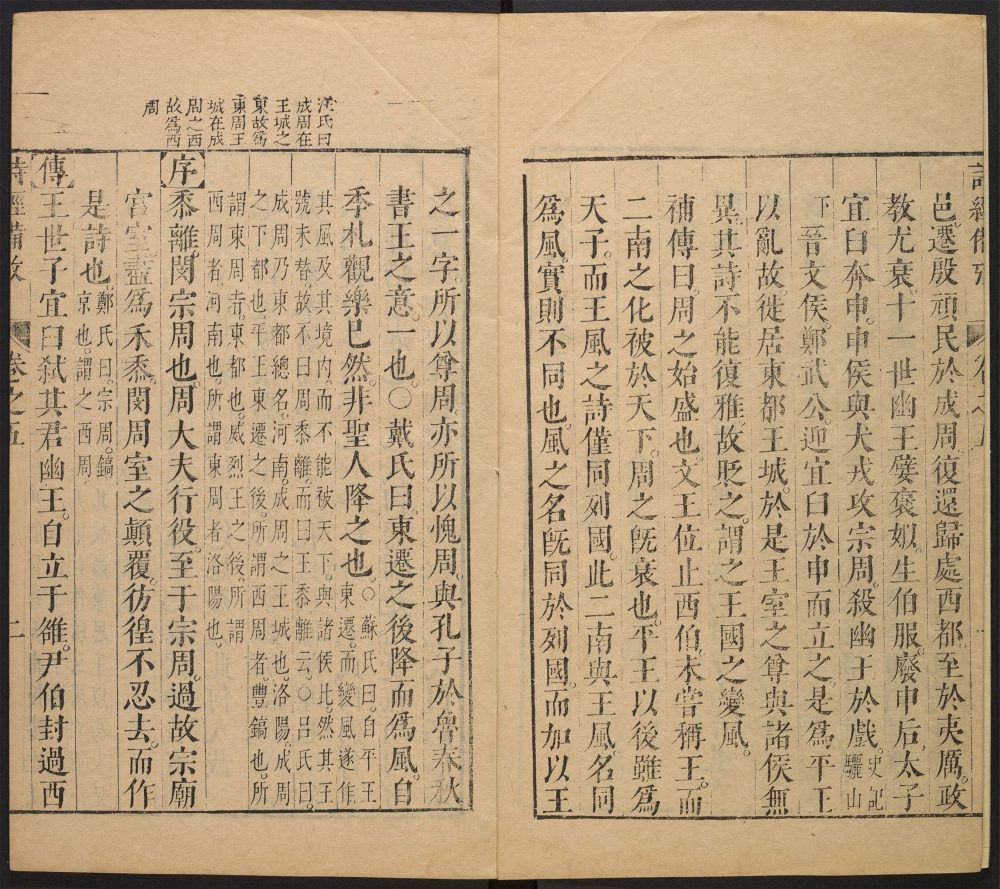 邑。遷殷頑民於成周。復還歸處西都。至於夷厲。政
教尤衰。十一世幽王嬖褒姒。生伯服。廢申后。太子
宜臼奔申。申侯與犬戎攻宗周。殺幽王於戲。史記驪山
下晉文侯。鄭武公。迎宜臼於申而立之。是爲平王
以亂故。徙居東都王城。於是王室之尊與諸侯無
異。其詩不能復雅。故貶之。謂之王國之變風。
補傳曰周之始盛也。文王位止西伯。未嘗稱王。而
二南之化被於天下。周之旣衰也。平王以後雖爲
天子。而王風之詩僅同列國。此二南與王風。名同
爲風。實則不同也。風之名旣同於列國。而加以王
之一字。所以尊周。亦所以愧周。與孔子於魯春秋
書王之意。一也。○戴氏曰。東遷之後。降而爲風。自
季札觀樂已然。非聖人降之也。○蘇氏曰。自平王
東遷。而變風遂作
其風及其境內。而不能被天下。與諸侯比。然其王
號未替。故不曰周黍離。而曰王黍離云。○呂氏曰。
成周乃東都總名。河南。成周之王城也。洛陽。成周
之下都也。平王東遷之後。所謂西周者。豐鎬也。所
謂東周者。東都也。威烈王之後。所謂
西周者。河南也。所謂東周者。洛陽也。
序黍離。閔宗周也。周大夫行役。至于宗周。過故宗廟
宮室。盡爲禾黍。閔周室之顛覆。彷徨不忍去。而作
是詩也。鄭氏曰。宗周。鎬
京也。謂之西周。
傳王世子宜臼弑其君幽王。自立于雒。尹伯封過西
汪氏曰
成周在
王城之
東故爲
東周王
城在成
周之西
故爲西
周
詩經備攷
卷之五
二